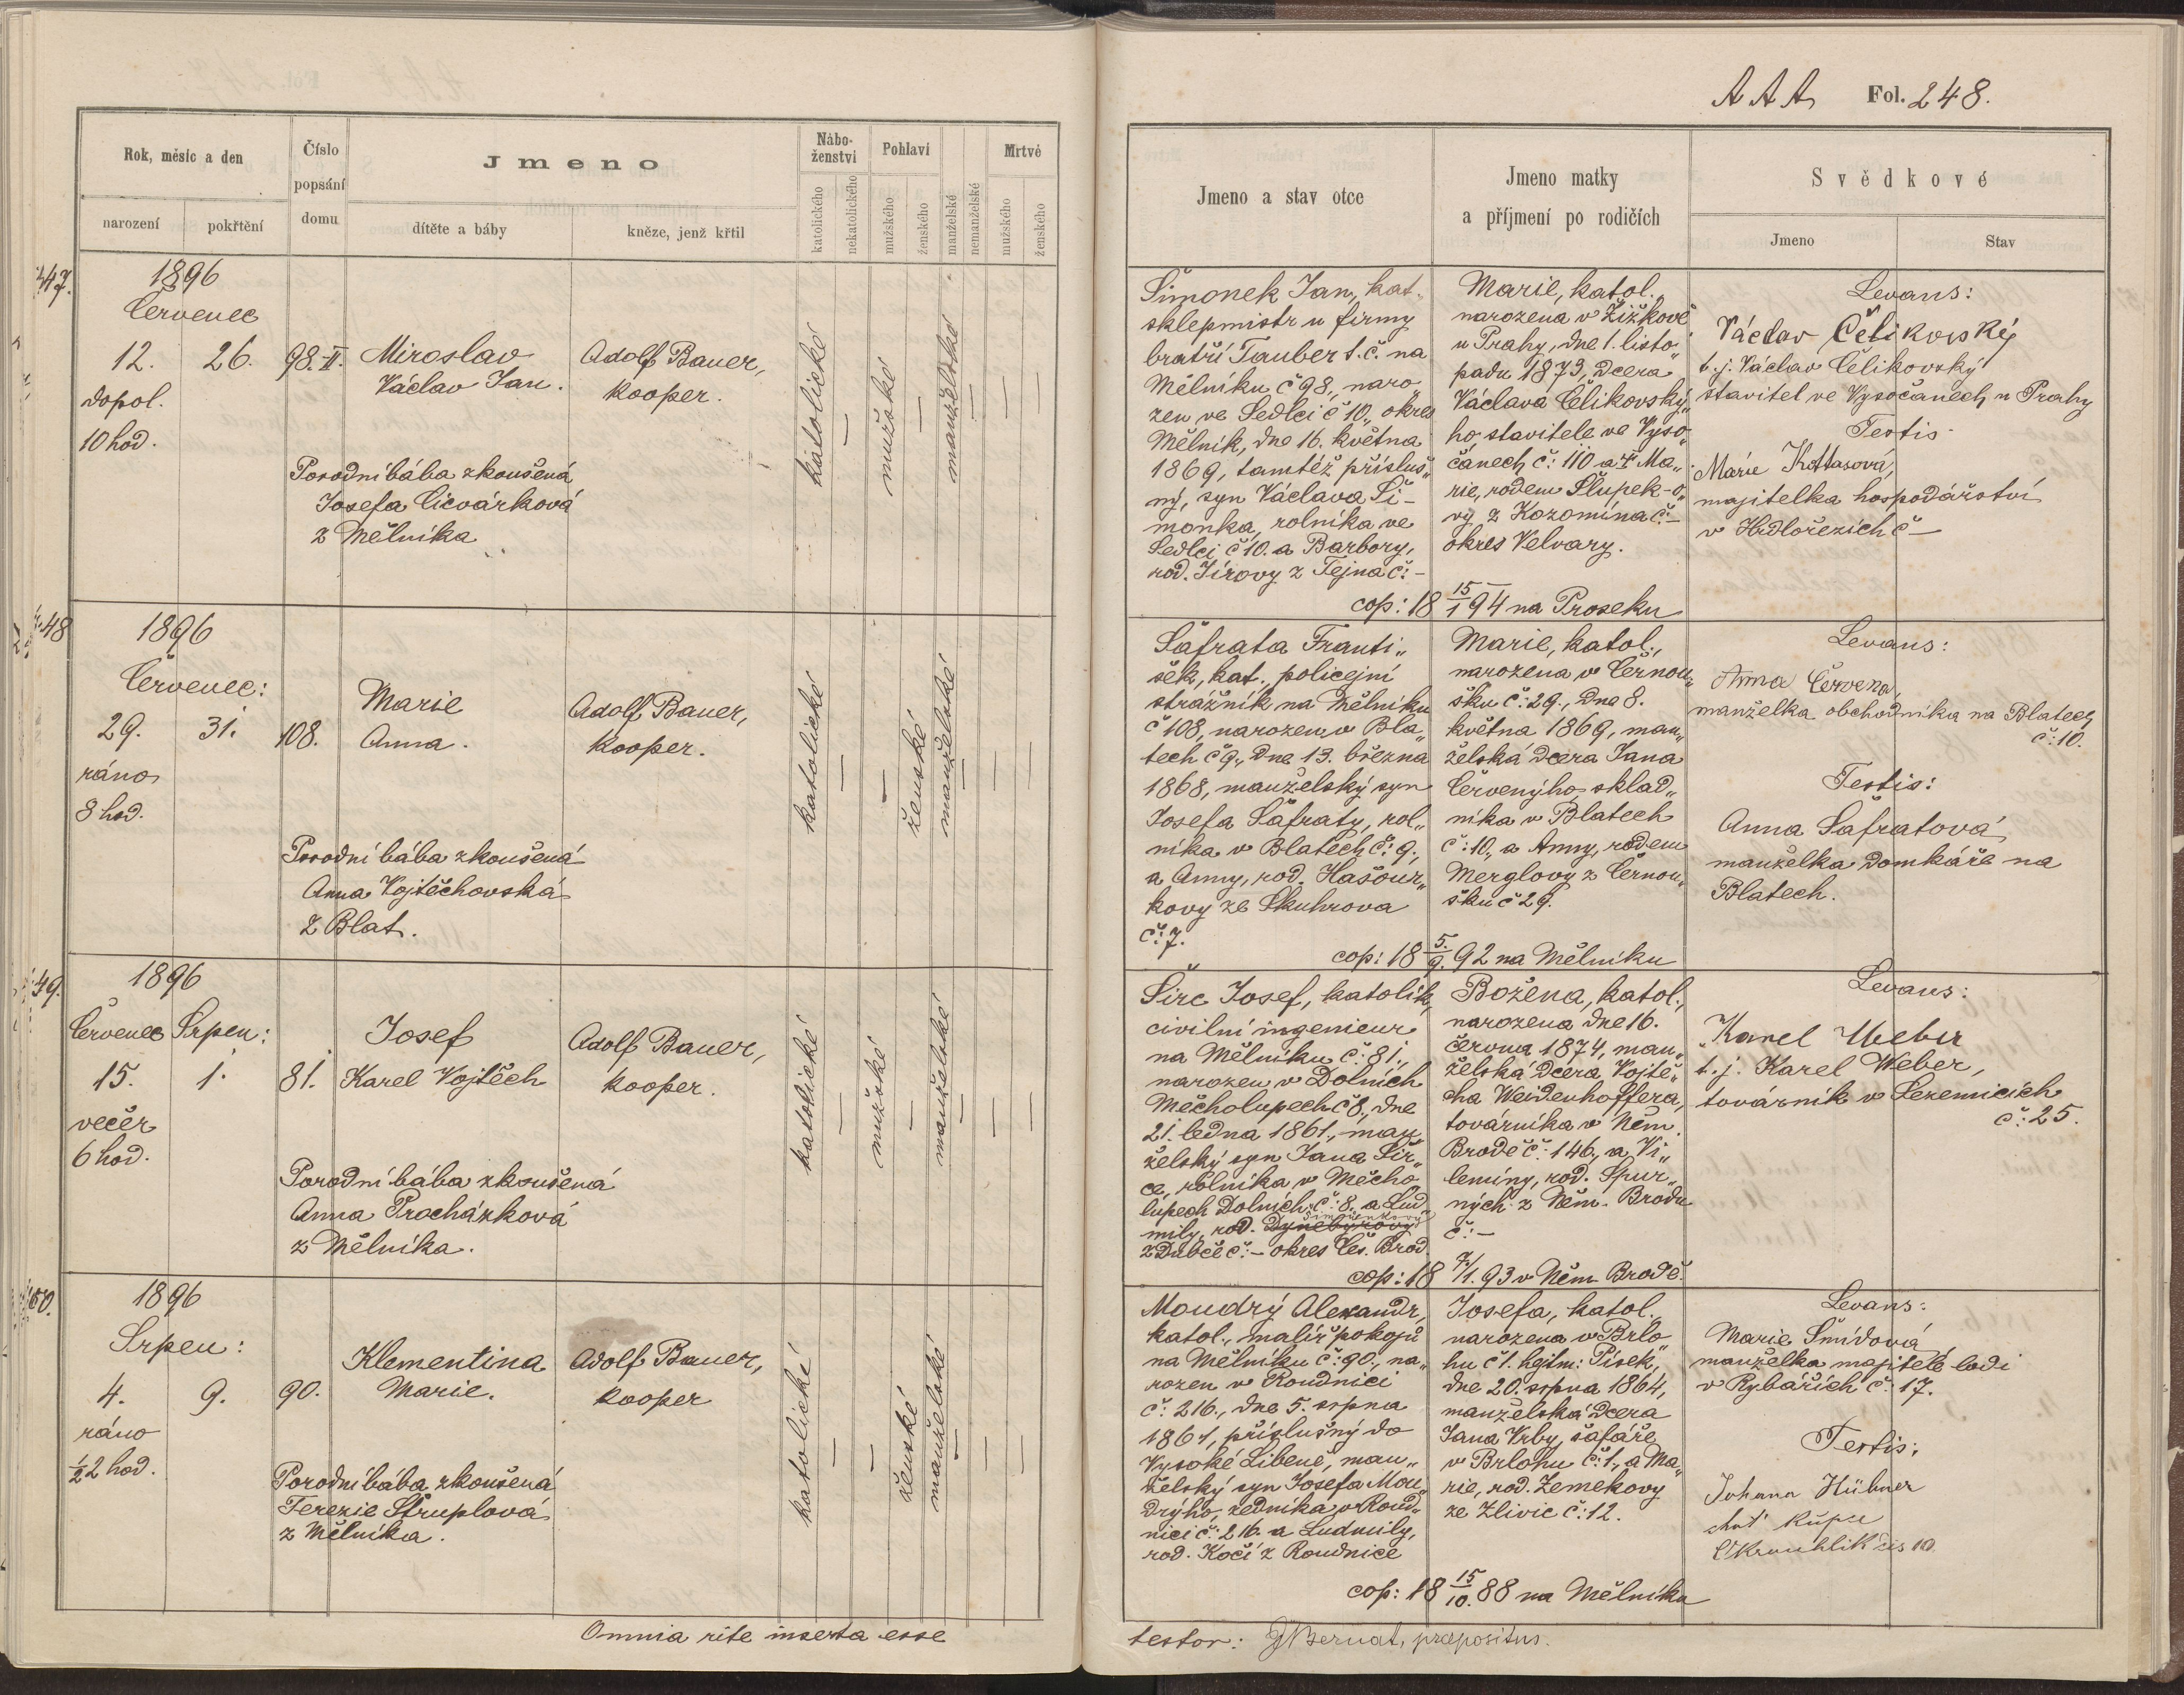 A A A Fol. 248.
Rok, měsíc a den
narození
pokřtění
Číslo
popsání
domu
Jmeno
dítěte a báby
kněze, jenž křtil
Nábo-
ženství
katolického
nekatolického
Pohlaví
mužského
ženského
manželské
nemanželské
Mrtvé
mužského
ženského
Jmeno a stav otce
Jmeno matky
a příjmení po rodičích
Svědkové
Jmeno
Stav
47.
1896
Červenec
12. 26. 98.-II.
dopol.
10 hod.
Miroslav
Václav Jan.
Adolf Bauer,
kooper.
katolické
mužské
manželské
Porodní bába zkoušená
Josefa Cicvárková
z Mělníka
Šimonek Jan, kat.
sklepmistr u firmy
bratří Tauber t. č. na
Mělníku č 98., naro„
zen ve Sedlci č 10., okres
Mělník, dne 16. května
1869, tamtéž přísluš„
ný, syn Václava Ši-
monka, rolníka ve
Sedlci č 10. a Barbory,
rod. Jírovy z Tejna č: -
Marie, katol.,
narozena v Žižkově
u Prahy, dne 1. listo„
padu 1873, dcera
Václava Čelikovský„
ho, stavitele ve Vyso„
čanech č: 110 a † Ma„
rie, rodem Slupek-o„
vy z Kozomína č: -
okres Velvary.
cop: 18 15/1 94 na Proseku
Levans:
Václav Čelikovský
t. j. Václav Čelikovský
stavitel ve Vysočanech u Prahy
Testis
Marie Kottasová,
majitelka hospodářství
v Hrdlořezích č -
48
1896
Červenec:
29. 31. 108.
ráno
8 hod.
Marie
Anna.
Adolf Bauer,
kooper.
katolické
ženské
manželské
Porodní bába zkoušená
Anna Vojtěchovská
z Blat.
Šafrata Franti„
šek, kat., policejní
strážník na Mělníku
č 108, narozen v Bla„
tech č 9., dne 13. března
1868, manželský syn
Josefa Šafraty, rol„
níka v Blatech č: 9.,
a Anny, rod. Hašour„
kovy ze Skuhrova
č: 7.
Marie, katol.,
narozena v Černou„
šku č: 29., dne 8.
května 1869, man„
želská dcera Jana
Červenýho, sklad„
níka v Blatech
č: 10., a Anny, rodem
Merglovy z Černou„
šku č 29.
cop: 18 5./9. 92 na Mělníku
Levans:
Anna Červená,
manželka obchodníka na Blatech
č: 10.
Testis:
Anna Šafratová
manželka domkáře na
Blatech.
49.
1896
Červenec Srpen:
15. 1. 81.
večer
6 hod.
Josef
Karel Vojtěch
Adolf Bauer,
kooper.
katolické
mužské
manželské
Porodní bába zkoušená
Anna Procházková
z Mělníka.
Širc Josef, katolík,
civilní ingenieur
na Mělníku č: 81.,
narozen v Dolních
Měcholupech č 8., dne
21. ledna 1861., man„
želský syn Jana Šir„
ce, rolníka v Měcho„
lupech Dolních č: 8., a Lud„
Šimůnkovy
mily, rod. Dynebyrovy
z Dubče č: - okres Čes. Brod.
Božena, katol.,
narozena dne 16.
června 1874, man„
želská dcera Vojtě„
cha Weidenhoffera,
továrníka v Něm.
Brodě č: 146., a Vi„
lemíny, rod. Spur„
ných z Něm. Brodu
č: -
cop: 18 7/1. 93 v Něm. Brodě.
Levans:
Karel Weber
t. j. Karel Weber,
továrník v Sezemicích
č: 25.
50.
1896
Srpen:
4. 9. 90.
ráno
½2 hod.
Klementina
Marie.
Adolf Bauer,
kooper
katolické
ženské
manželské
Porodní bába zkoušená
Terezie Štruplová
z Mělníka.
Moudrý Alexandr,
katol., malíř pokojů
na Mělníku č: 90., na„
rozen v Roudnici
č: 216., dne 5. srpna
1861, příslušný do
Vysoké Libeně, man„
želský syn Josefa Mou„
drýho, zedníka v Roud„
nici č: 216. a Ludmily,
rod. Kočí z Roudnice
Josefa, katol.,
narozena v Brlo„
hu č 1. hejtm: Písek,
dne 20. srpna 1864,
manželská dcera
Jana Vrby, šafáře
v Brlohu č: 1., a Ma„
rie, rod. Zemekovy
ze Zlivic č: 12.
cop: 18 15/10. 88 na Mělníku
Levans:
Marie Šmídová
manželka majitele lodi
v Rybářích č: 17.
Testis:
Johana Hübner
choť kupce
Okrouhlík čis 10
Omnia rite inserta esse
testor: J Bernat, præpositus.